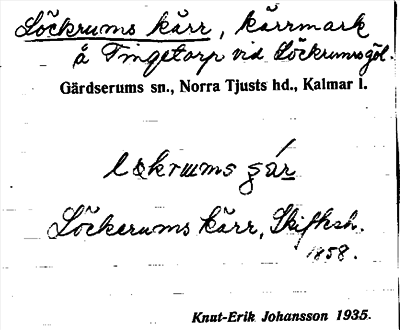 Löckrums kärr, kärrmark
å Tingetorp vid Löckrumsgöl.
Gärdserums sn., Norra Tjusts hd., Kalmar l.
Löckerums kärr, Skifksh.
1858.
Knut-Erik Johansson 1935.